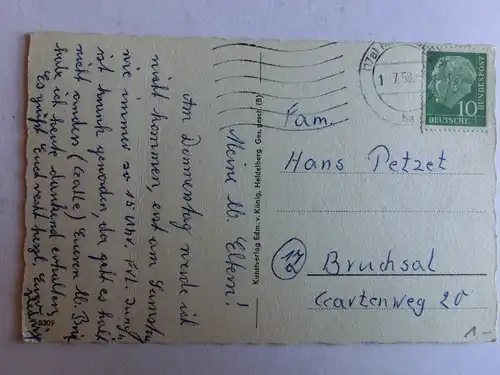 Meine lb. Eltern!
Am Donnerstag werde ich
nicht kommen, erst am Samstag
wie immer so 15 Uhr. Frl. Jung
ist krank geworden, da geht es halt
nicht anders (Galle) Eueren lb. Brief
habe ich heute dankend erhalten,
Es grüßt Euch recht herzl. Eure
8309
Kunstverlag Edm. v. König, Heidelberg. Ges. gesch. (B)
(17a)
1. 7.58.
10
DEUTSCHE BUNDESPOST
Fam.
Hans Petzet
17a
Bruchsal
Gartenweg 20
1.-